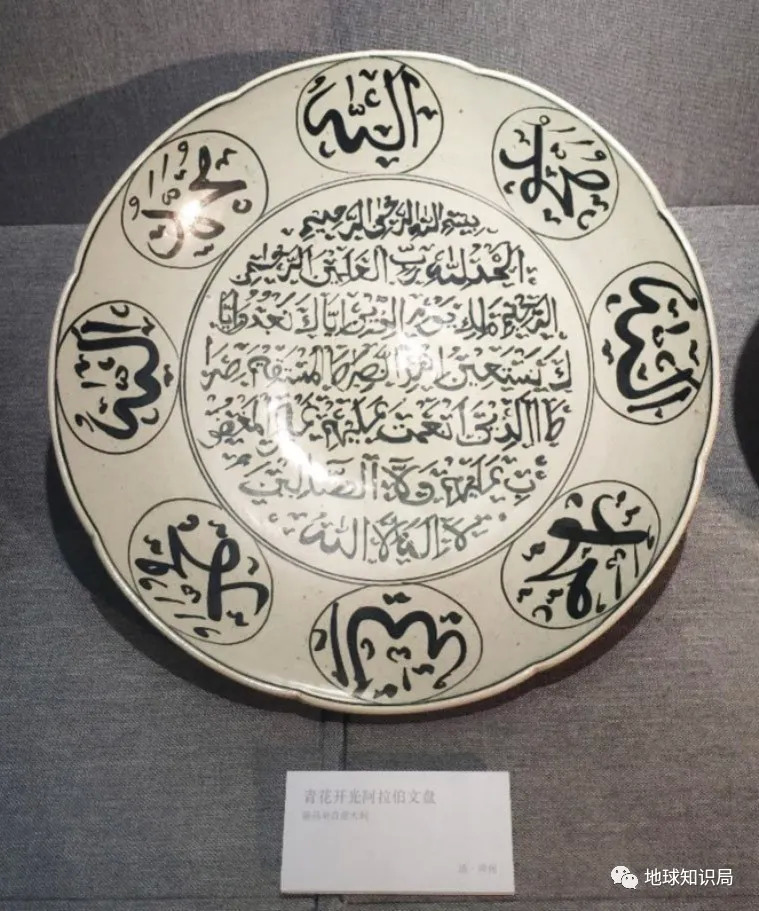 الله
محمد
محمد
بسم الله الرحمن الرحيم
الحمد لله رب العلمين الرحمن
الرحيم ملك يوم الدين اياك نعبد وايا
ك نستعين اهدنا الصراط المستقيم صرا
ط الذين انعمت عليهم غير المغضو
ب عليهم ولا الضالين
لا اله الا الله
الله
الله
محمد
محمد
الله
青花开光阿拉伯文盘
地球知识局